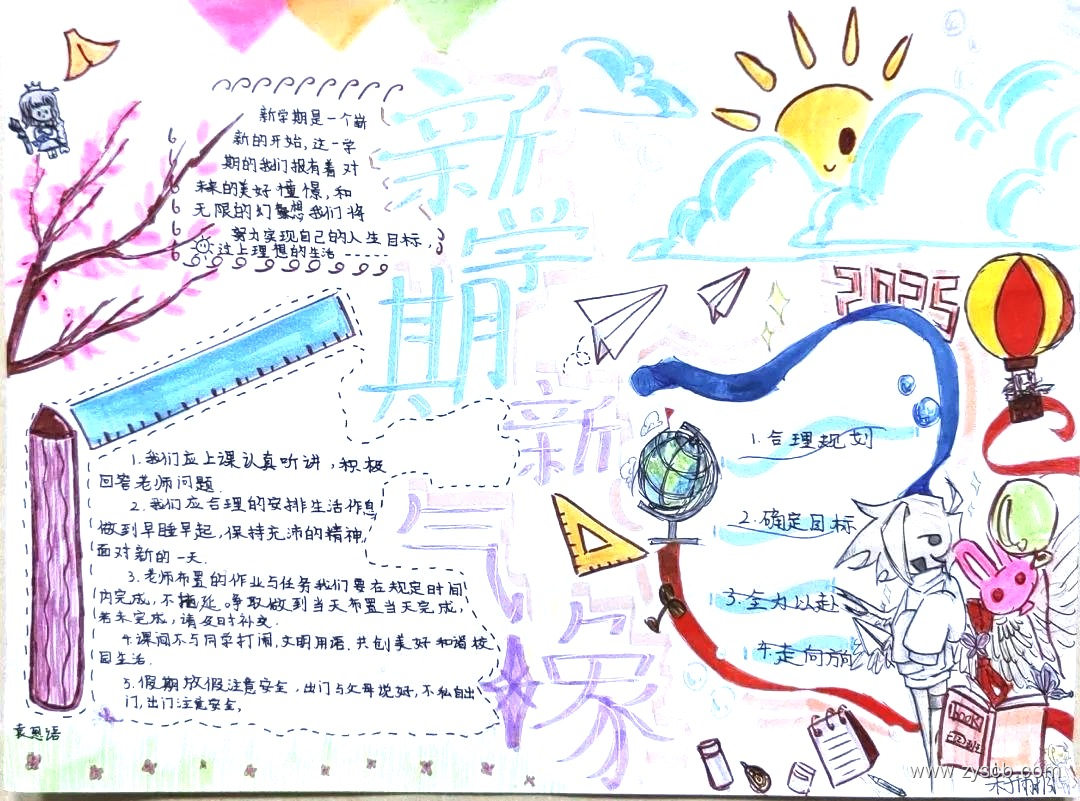 新学期是一个崭
新的开始,这一学
期的我们报有着对
未来的美好憧憬,和
无限的幻想我们将
努力实现自己的人生目标,
过上理想的生活------
新学期
新气象
2025
1.我们应上课认真听讲,积极
回答老师问题.
2.我们应合理的安排生活作息
做到早睡早起,保持充沛的精神,
面对新的一天.
3.老师布置的作业与任务我们要在规定时间
内完成,不拖延.争取做到当天布置当天完成,
若未完成,请及时补交.
4.课间不与同学打闹,文明用语.共创美好和谐校
园生活.
5.假期放假注意安全,出门与父母说好,不私自出
门,出门注意安全.
1.合理规划
2.确定目标
3.全力以赴
4.走向前
BOOK
袁恩语
www.zyscb.com